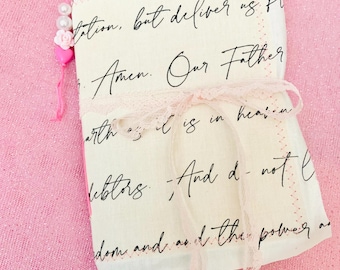 tation, but deliver us f
Amen. Our Father
arth as it is in heaven
debtors. And do not l
dom and and the power a